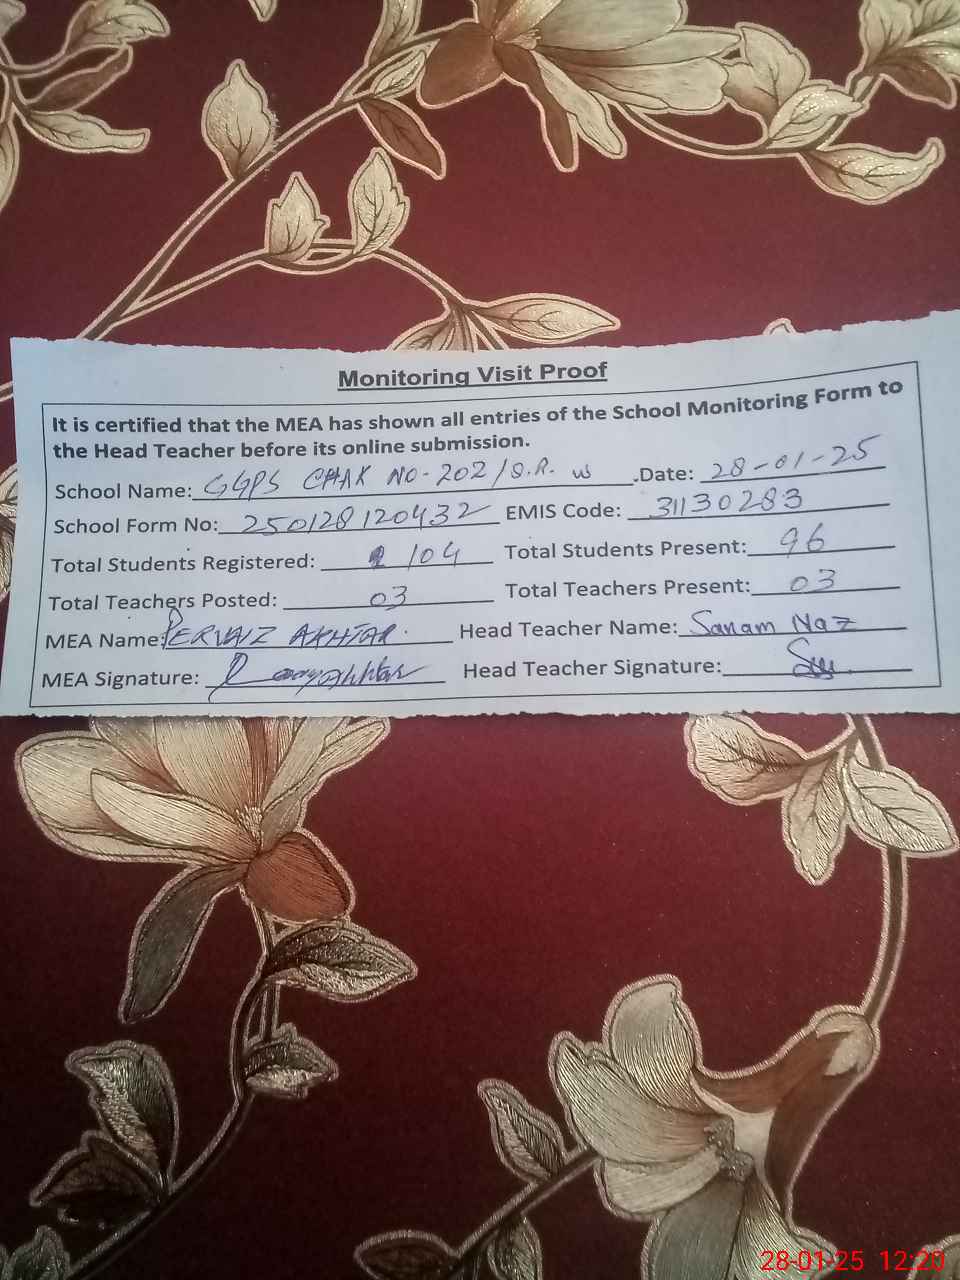 Monitoring Visit Proof
It is certified that the MEA has shown all entries of the School Monitoring Form to
the Head Teacher before its online submission.
School Name: GGPS CHAK NO-202/8.R. w .Date: 28-01-25
School Form No: 250128120432 EMIS Code: 31130283
Total Students Registered: 104 Total Students Present: 96
Total Teachers Posted: 03 Total Teachers Present: 03
MEA Name: PERVAIZ AKHTAR. Head Teacher Name: Sanam Naz
MEA Signature: Head Teacher Signature:
28-01-25 12:20